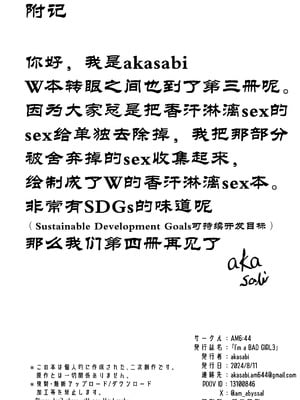 附记
你好，我是akasabi
W本转眼之间也到了第三册呢。
因为大家总是把香汗淋漓sex的
sex给单独去除掉，我把那部分
被舍弃掉的sex收集起来，
绘制成了W的香汗淋漓sex本。
非常有SDGs的味道呢
（Sustainable Development Goals可持续开发目标）
那么我们第四册再见了
aka
sabi
サークル：AM6:44
発行誌名：「I'm a BAD GIRL3」
発行者：akasabi
発行日：2024/8/11
連絡先：akasabi.am644@gmail.com
PIXIV ID：13100846
X：@am_abyssal
※この本は個人的に作成された、二次創作です。
原作とは一切関係ありません。
※複製・無断アップロード/ダウンロード
加工等を禁止します。